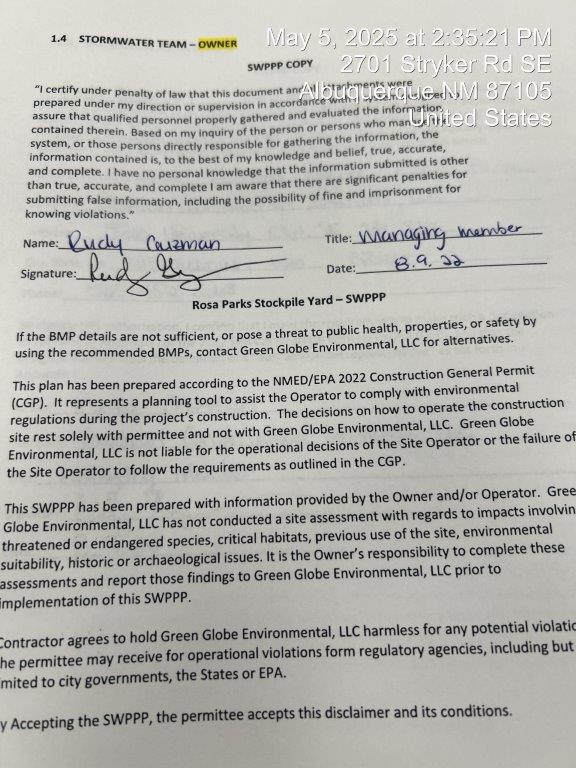 May 5, 2025 at 2:35:21 PM
2701 Stryker Rd SE
Albuquerque NM 87105
United States
1.4 STORMWATER TEAM – OWNER
SWPPP COPY
"I certify under penalty of law that this document and attachments were
prepared under my direction or supervision in accordance with a system designed to
assure that qualified personnel properly gathered and evaluated the information
contained therein. Based on my inquiry of the person or persons who manage the
system, or those persons directly responsible for gathering the information, the
information contained is, to the best of my knowledge and belief, true, accurate,
and complete. I have no personal knowledge that the information submitted is other
than true, accurate, and complete I am aware that there are significant penalties for
submitting false information, including the possibility of fine and imprisonment for
knowing violations."
Name: Rudy Guzman Title: Managing member
Signature: Date: 8.9.22
Rosa Parks Stockpile Yard – SWPPP
If the BMP details are not sufficient, or pose a threat to public health, properties, or safety by
using the recommended BMPs, contact Green Globe Environmental, LLC for alternatives.
This plan has been prepared according to the NMED/EPA 2022 Construction General Permit
(CGP). It represents a planning tool to assist the Operator to comply with environmental
regulations during the project's construction. The decisions on how to operate the construction
site rest solely with permittee and not with Green Globe Environmental, LLC. Green Globe
Environmental, LLC is not liable for the operational decisions of the Site Operator or the failure of
the Site Operator to follow the requirements as outlined in the CGP.
This SWPPP has been prepared with information provided by the Owner and/or Operator. Gree
Globe Environmental, LLC has not conducted a site assessment with regards to impacts involvin
threatened or endangered species, critical habitats, previous use of the site, environmental
suitability, historic or archaeological issues. It is the Owner's responsibility to complete these
assessments and report those findings to Green Globe Environmental, LLC prior to
implementation of this SWPPP.
Contractor agrees to hold Green Globe Environmental, LLC harmless for any potential violatio
he permittee may receive for operational violations form regulatory agencies, including but
mited to city governments, the States or EPA.
y Accepting the SWPPP, the permittee accepts this disclaimer and its conditions.